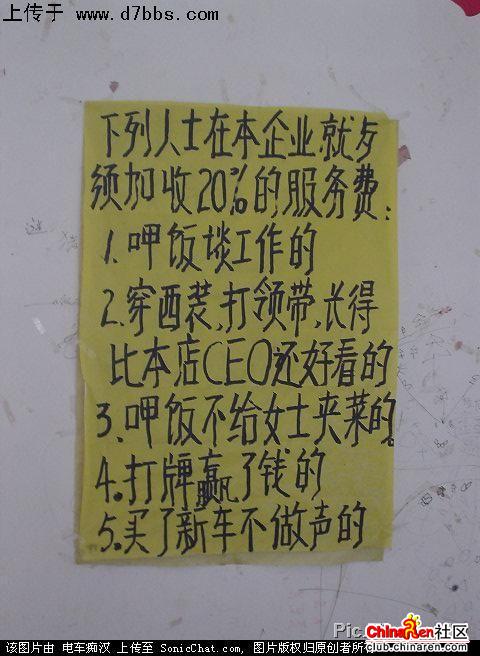 上传于 www.d7bbs.com
下列人士在本企业就歺
须加收20%的服务费:
1.呷饭埮工作的
2.穿西装,打领带,长得
比本店CEO还好看的
3、呷饭不给女士夹菜的。
4.打牌赢了钱的
5.买了新车不做声的
Pic.
ChinaRen社区
club.chinaren.com
该图片由 电车痴汉 上传至 SonicChat.com, 图片版权归原创者所